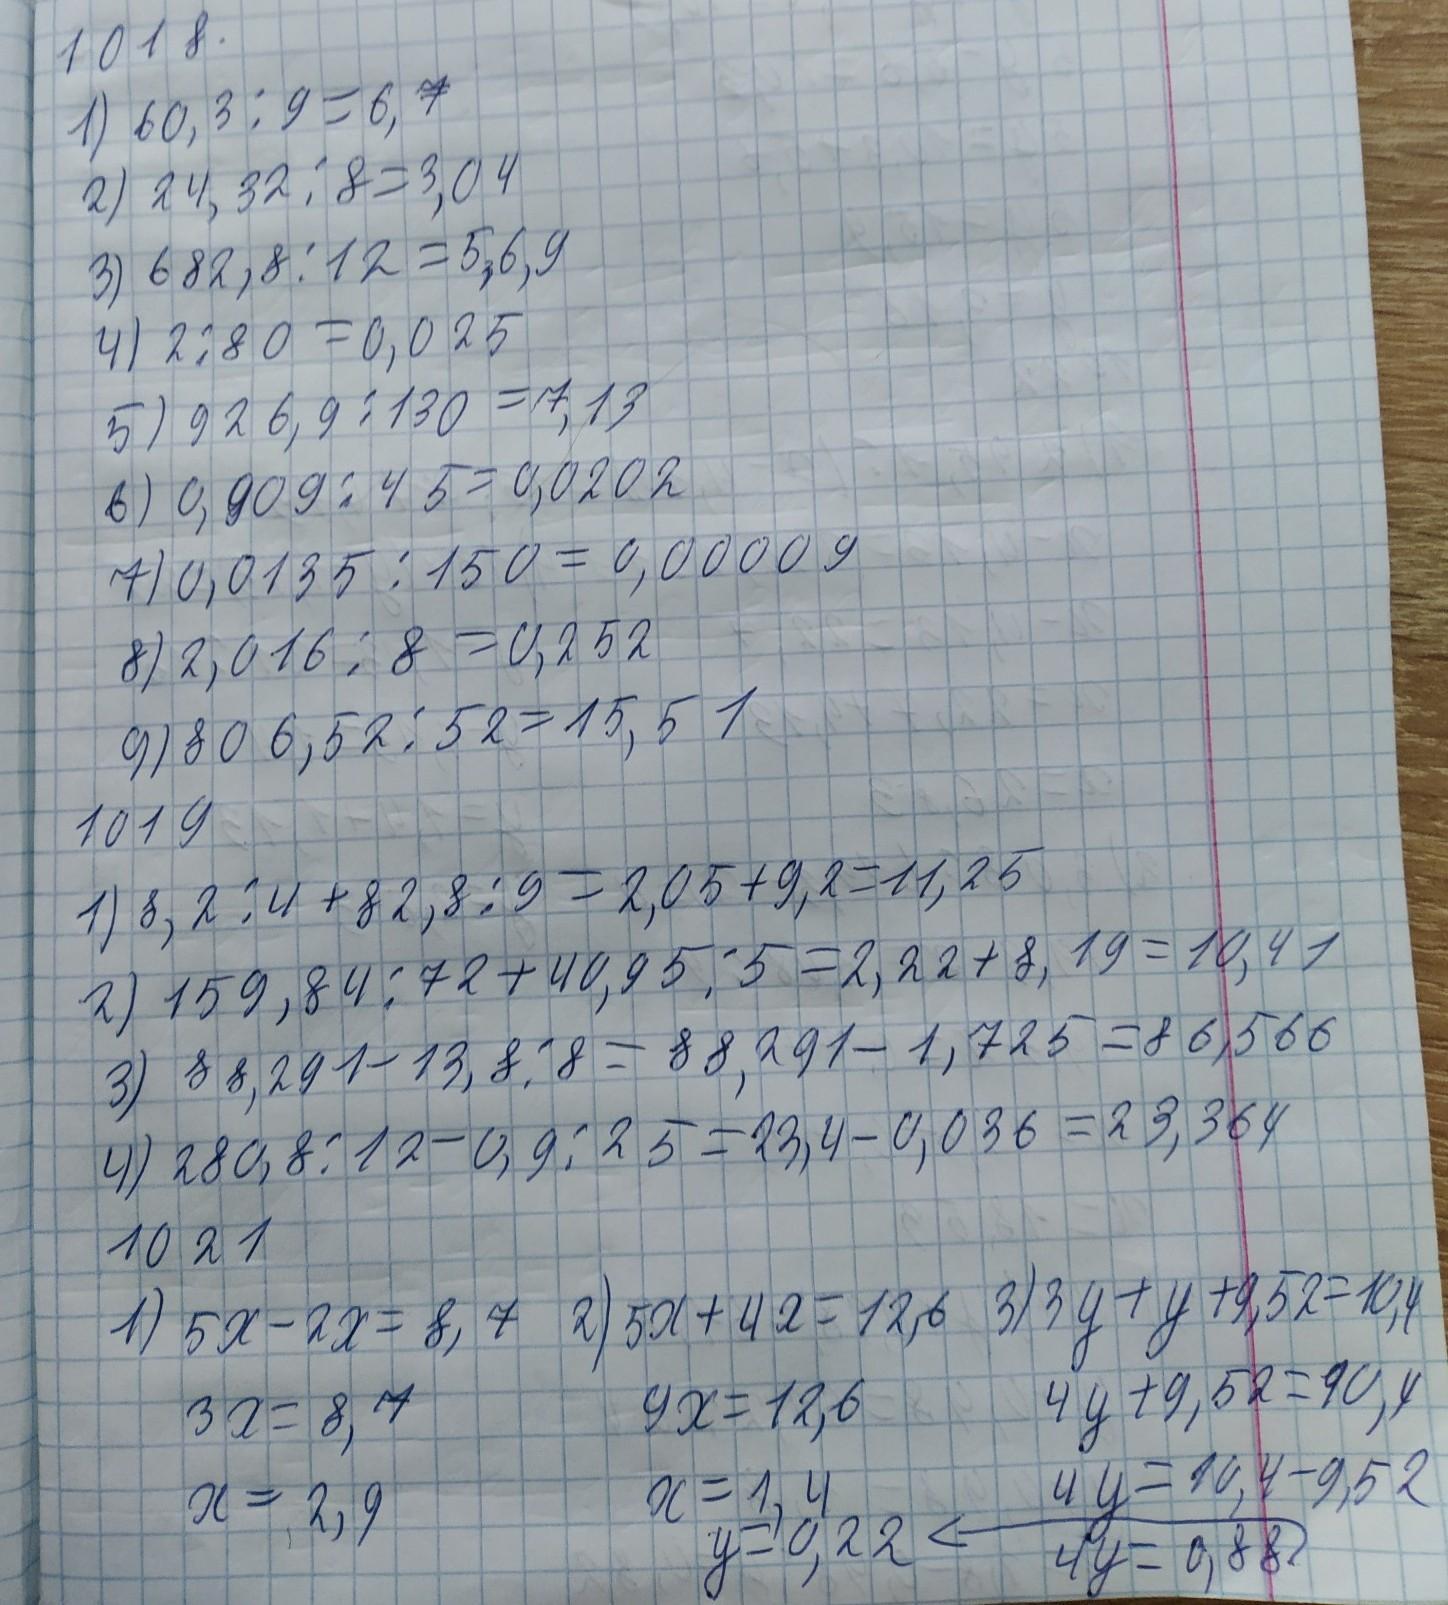 1018.
1) 60,3:9=6,7
2) 24,32:8=3,04
3) 682,8:12=5,6,9
4) 2:80=0,025
5) 926,9:130=7,13
6) 0,909:45=0,0202
7) 0,0135:150=0,00009
8) 2,016:8=0,252
9) 806,52:52=15,51
1019
1) 8,2:4+82,8:9=2,05+9,2=11,25
2) 159,84:72+40,95:5=2,22+8,19=10,41
3) 88,291-13,8:8=88,291-1,725=86,566
4) 280,8:12-0,9:25=23,4-0,036=23,364
1021
1) 5x-2x=8,7 2) 5x+4x=12,6 3) 3y+y+9,52=10,4
3x=8,7 9x=12,6 4y+9,52=10,4
x=2,9 x=1,4 4y=10,4-9,52
y=0,22 4y=0,88